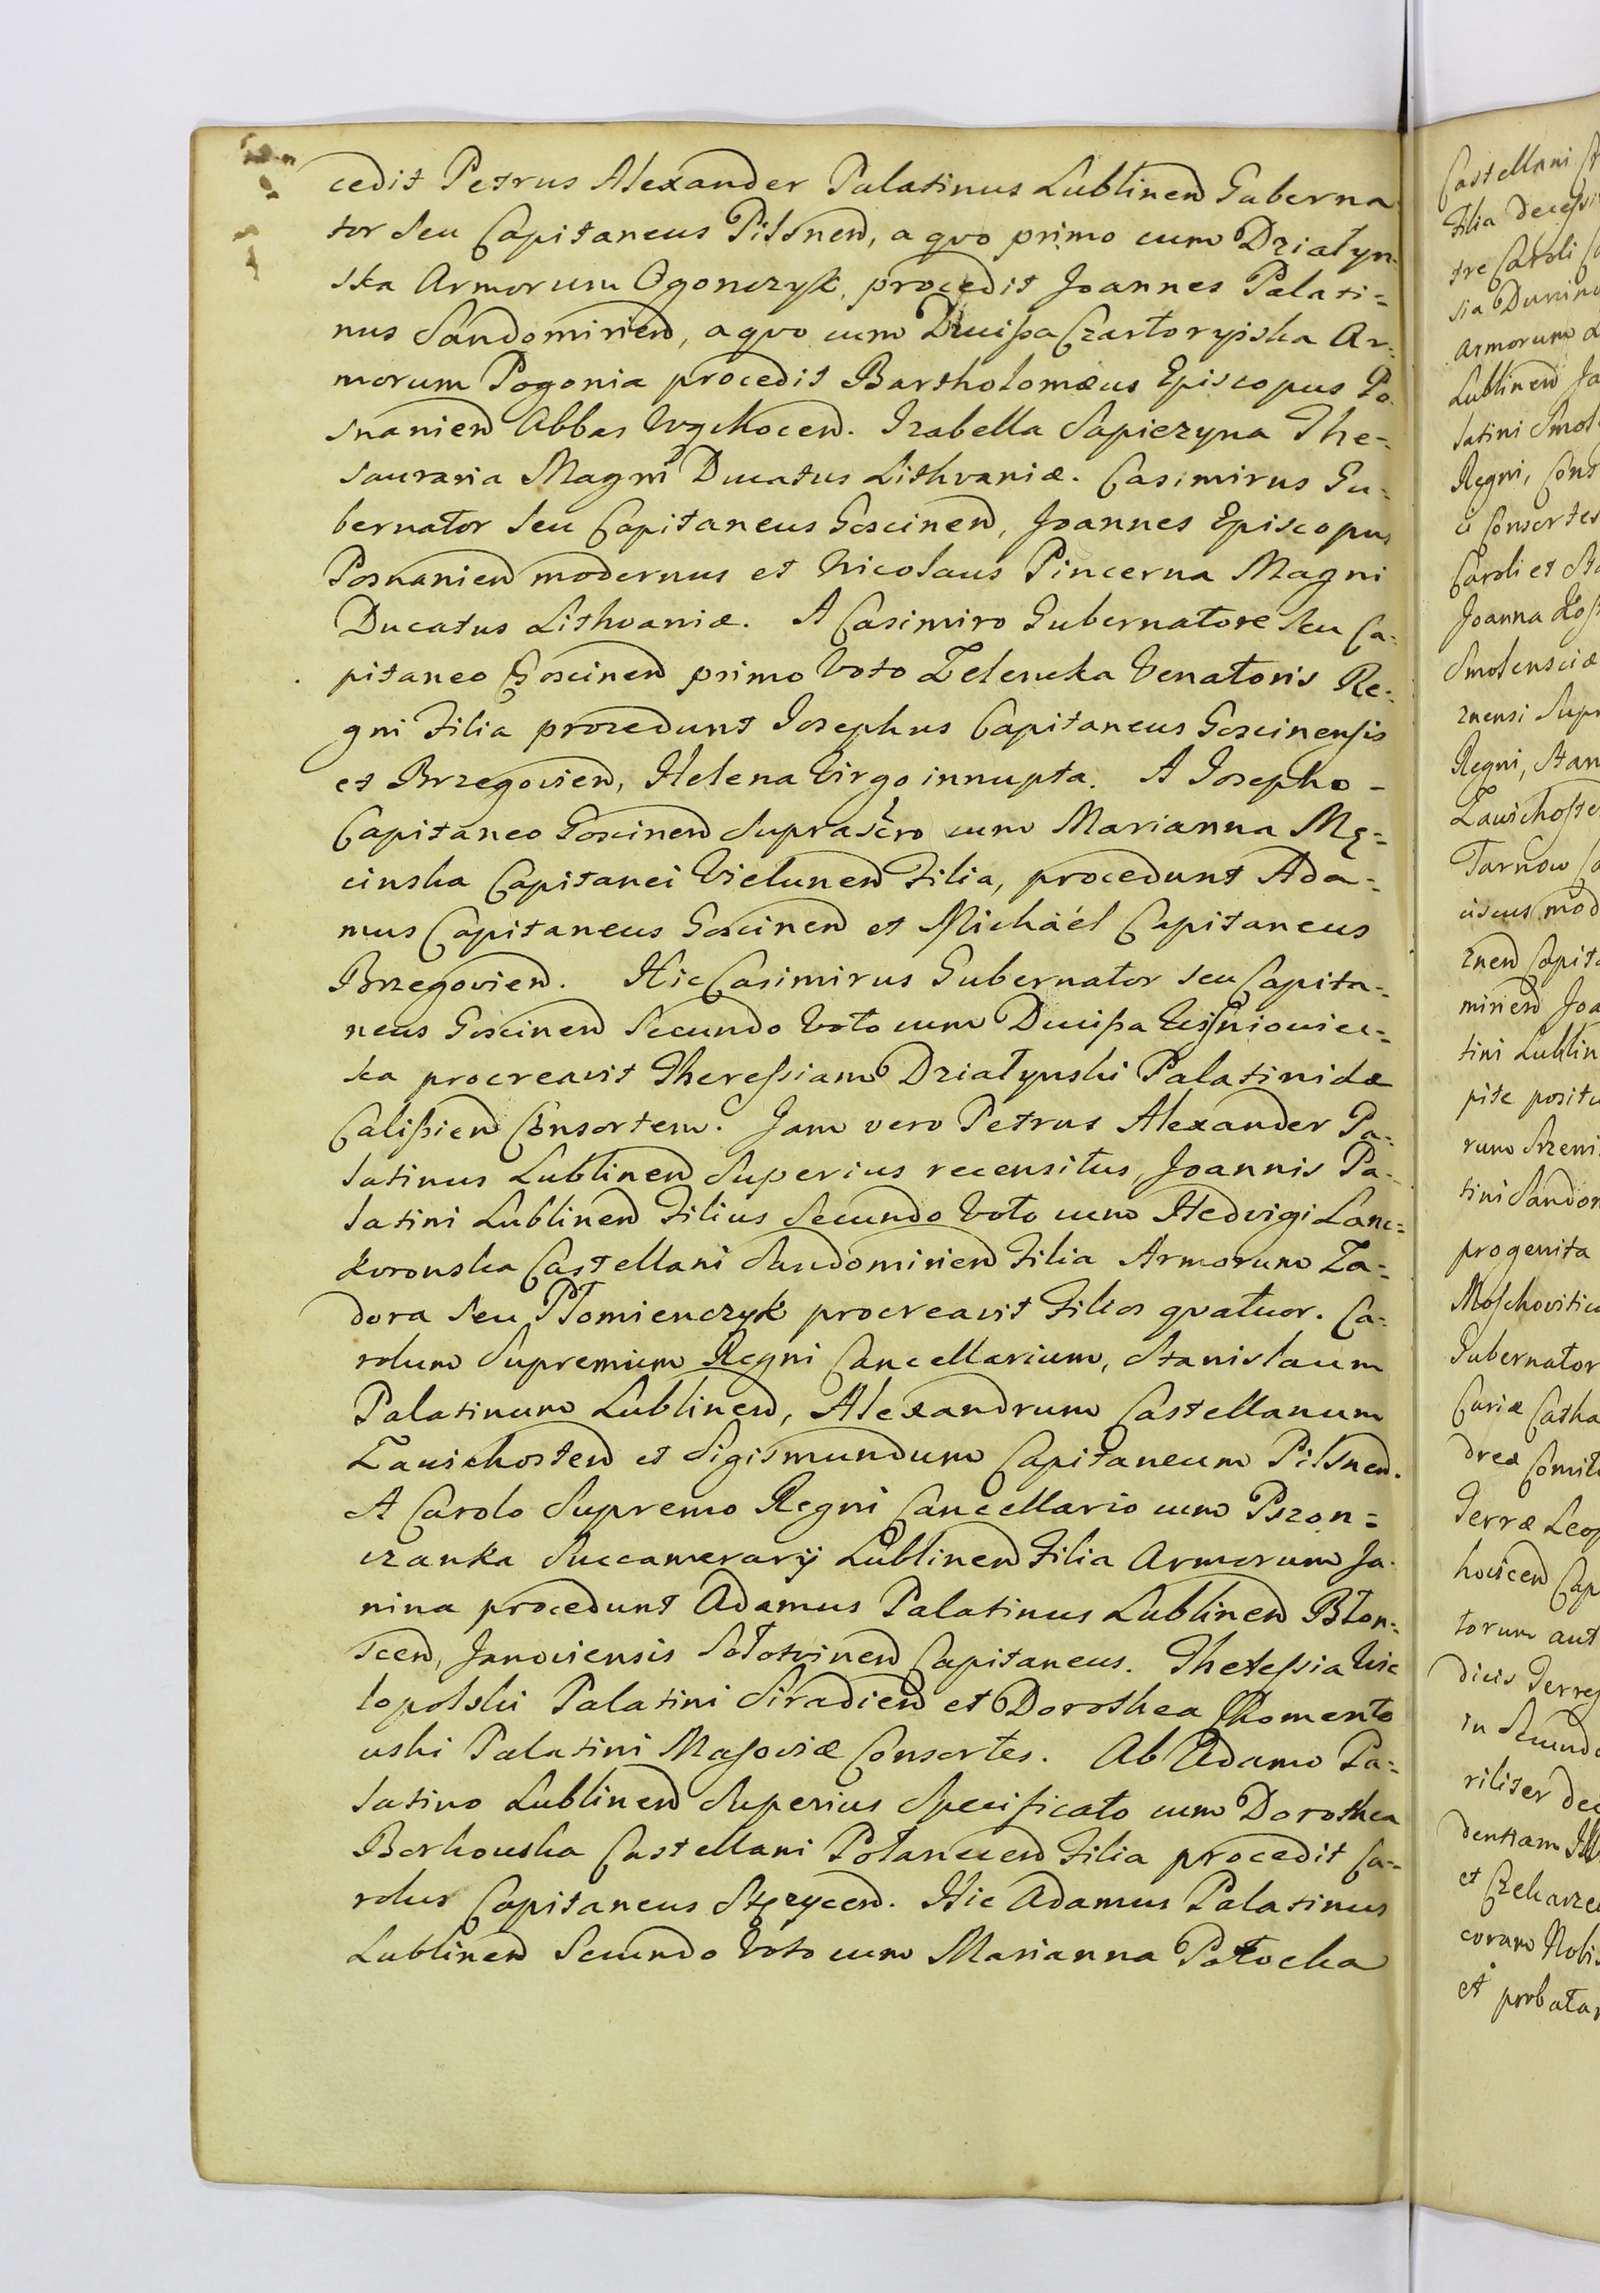 cedit Petrus Alexander Palatinus Lublinen Guberna
tor seu Capitaneus Pilsnen, a qvo primo cum Działyn-
ska Armorum Ogonczyk, procedit Joannes Palati=
nus Sandomirien, a qvo cum Ducißa Czartoryiska Ar=
morum Pogonia procedit Bartholomæus Episcopus Po
snanien Abbas Wgchocen. Izabella Sapiezyna The=
sauraria Magni Ducatus Lithvaniæ. Casimirus Gu=
bernator seu Capitaneus Goscinen, Joannes Episcopus
Posnanien modernus et Nicolaus Pincerna Magni
Ducatus Lithvaniæ. A Casimiro Gubernatore seu Ca=
pitaneo Goscinen primo Voto Zelencka Venatoris Re=
gni Filia procedunt Josephus Capitaneus Goscinensis
et Brzegovien, Helena Virgo innupta. A Josepho -
Capitaneo Goscinen Suprascro cum Marianna Mę=
cinska Capitanei Vielunen Filia, procedunt Ada=
mus Capitaneus Goscinen et Michaél Capitaneus
Brzegovien. Hic Casimirus Gubernator seu Capita=
neus Goscinen Secundo Voto cum Ducißa Wisniowiec=
ka procreavit Theressiam Działynski Palatinidæ
Calißien Consortem. Jam vero Petrus Alexander Pa=
latinus Lublinen Superius recensitus, Joannis Pa-
latini Lublinen Filius Secundo Voto cum Hedvigi Lanc=
koronska Castellani Sandomirien Filia Armorum Za=
dora seu Płomienczyk procreavit Filios qvatuor. Ca=
rolum Supremum Regni Cancellarium, Stanislaum
Palatinum Lublinen, Alexandrum Castellanum
Zawichosten et Sigismundum Capitaneum Pilsnen.
A Carolo Supremo Regni Cancellario cum Pszon=
czanka Succamerarij Lublinen Filia Armorum Ja-
nina procedunt Adamus Palatinus Lublinen Błon=
scen, Janoviensis Sołotvinen Capitaneus. Theressia Wie
lopolski Palatini Siradien et Dorothea Chomento
wski Palatini Masoviæ Consortes. Ab Adamo Pa=
latino Lublinen Superius Specificato cum Dorothea
Borkowska Castellani Połanecen Filia procedit Ca=
rolus Capitaneus Stęzycen. Hic Adamus Palatinus
Lublinen Secundo Voto cum Marianna Potocka
Castellani
Filia decessi
tre Caroli
sia Dunino
Armorum
Lublinen
latini Smol
Regni, Cons
Consortes
Caroli et
Joanna
Smolensciæ
znensi Supr
Regni, Stan
Tarnow
ciscus mod
znen Capit
mirien Joa
tini Lublin
pite positu
rum
tini Sandom
progenita
Moschovitic
Gubernator
Curiæ Catha
Comit
Terræ Leop
Cap
torum aut
dicis Terres
in Secundo
riliter dec
dentiam
et
coram Nobis
et probatam